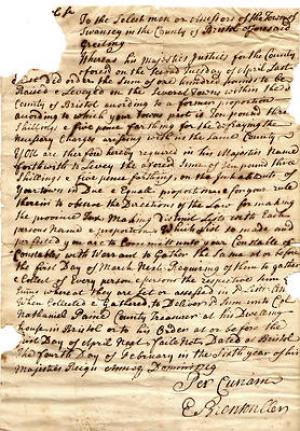 To the Select men or assessors of the Town of
Swansey in the County of Bristol aforesaid
Greeting
Whereas his Majesties Justices for the County
afored on the second Tuesday of April Last
did order the Sum of one hundred pounds to be
Raised & Leveyed in the Severall Towns within the sd
County of Bristol according to a former proportion
according to which your Towns part is Ten pound three
Shillings & five pence farthing for the defraying the
necessary Charges arising with in the same County
You are therefore hereby required in his Majesties Name
forthwith to Levey the afored Sume of Ten pound three
Shillings & five pence farthing, on the Inhabitants of
your town in Due & Equall proportion
therein to observe the Directions of the Law for making
the province Tax Making Distinct Lists with Each
persons Name & proportion Which List so made and
perfected you are to Committ unto your Constable or
Constables with Warrant to Gather the Same at or before
the first Day of March Next Requiring them to gather
& Colect of Every person & persons the respective
Sums where at they are set or assessed in sd List
When Collected & Gathered, to Deliver sd Sum unto Col
Nathaniel Paine County Treasurer at his Dwelling
house in Bristol or to his Order at or before the
first Day of April Next faile Not Dated at Bristol
The fourth Day of February in the Sixth year of his
Majesties Reign Annoq Domini
Per Curiam